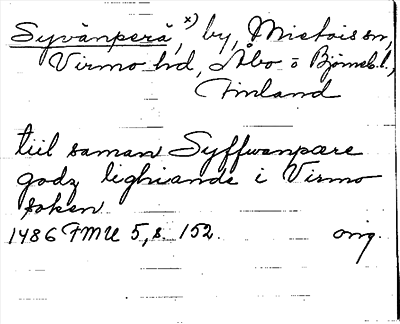 Syvänperä,x) by, Mietois sn,
Virmo hd, Åbo o Björneb. l.,
Finland
tiil saman Syffwanpære
godz lighiande i Virmo
soken
1486 FMU 5, s. 152. orig.